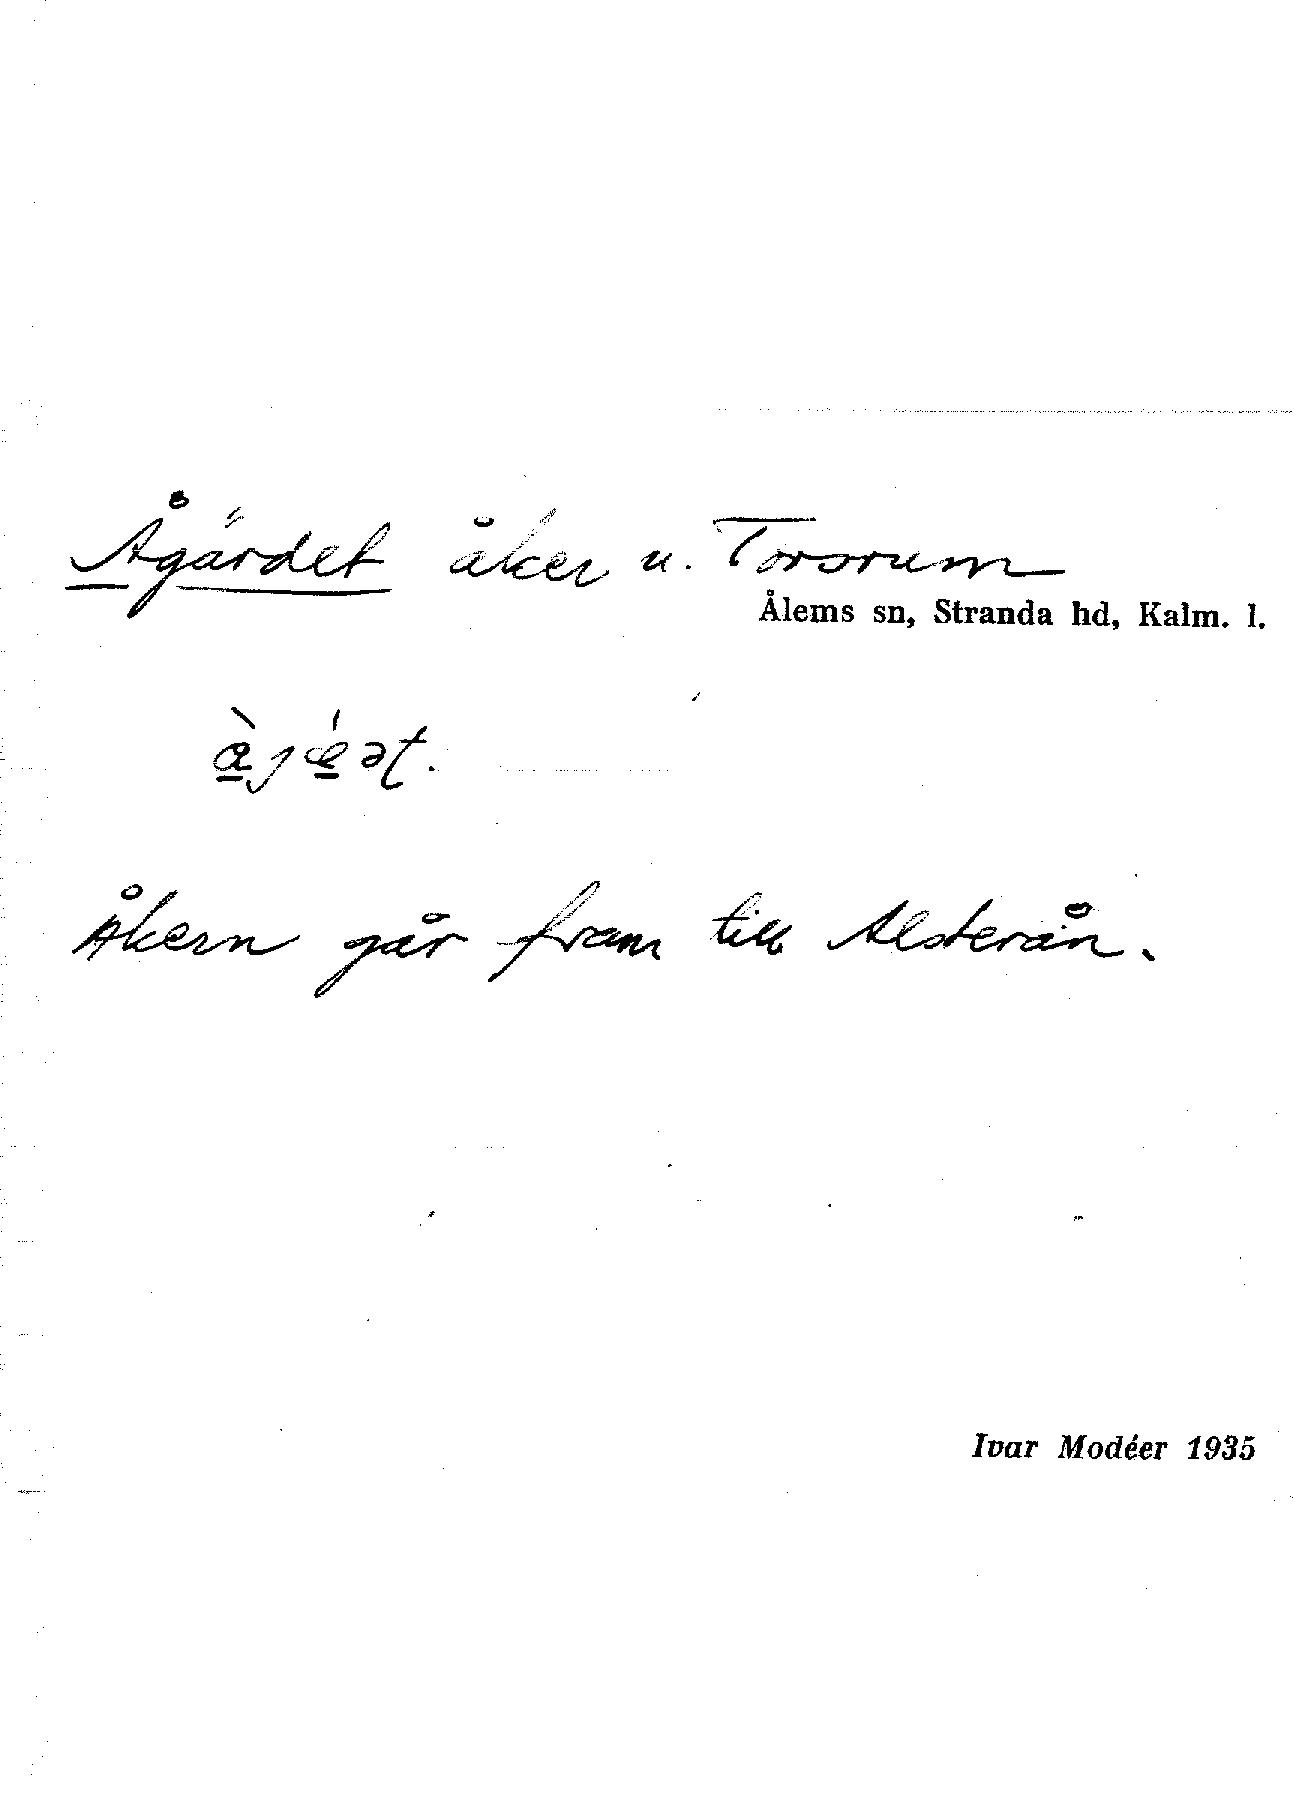 Ågärdet åker u. Torsrum
Ålems sn, Stranda hd, Kalm. l.
Åkern går fram till Alsterån.
Ivar Modéer 1935